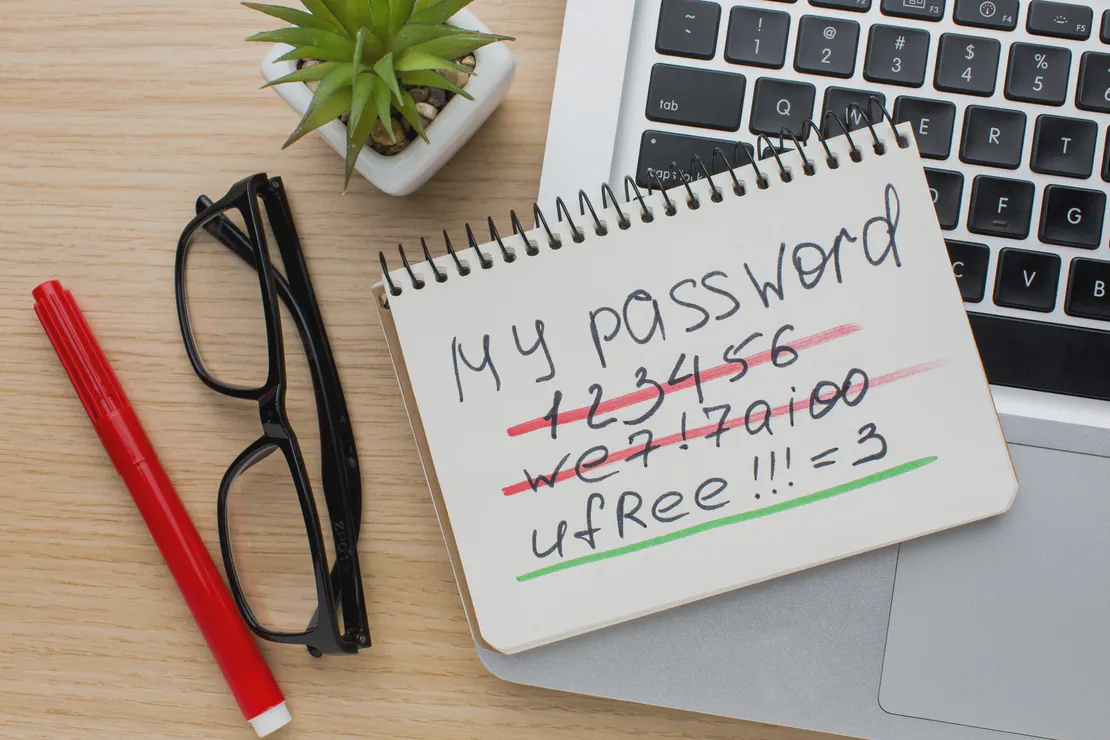 ~
! 1
@ 2
# 3
$ 4
% 5
F3
F4
F5
tab
Q
W
E
R
T
caps lock
D
F
G
C
V
B
My password
123456
we7!7aioo
ufRee!!!=3